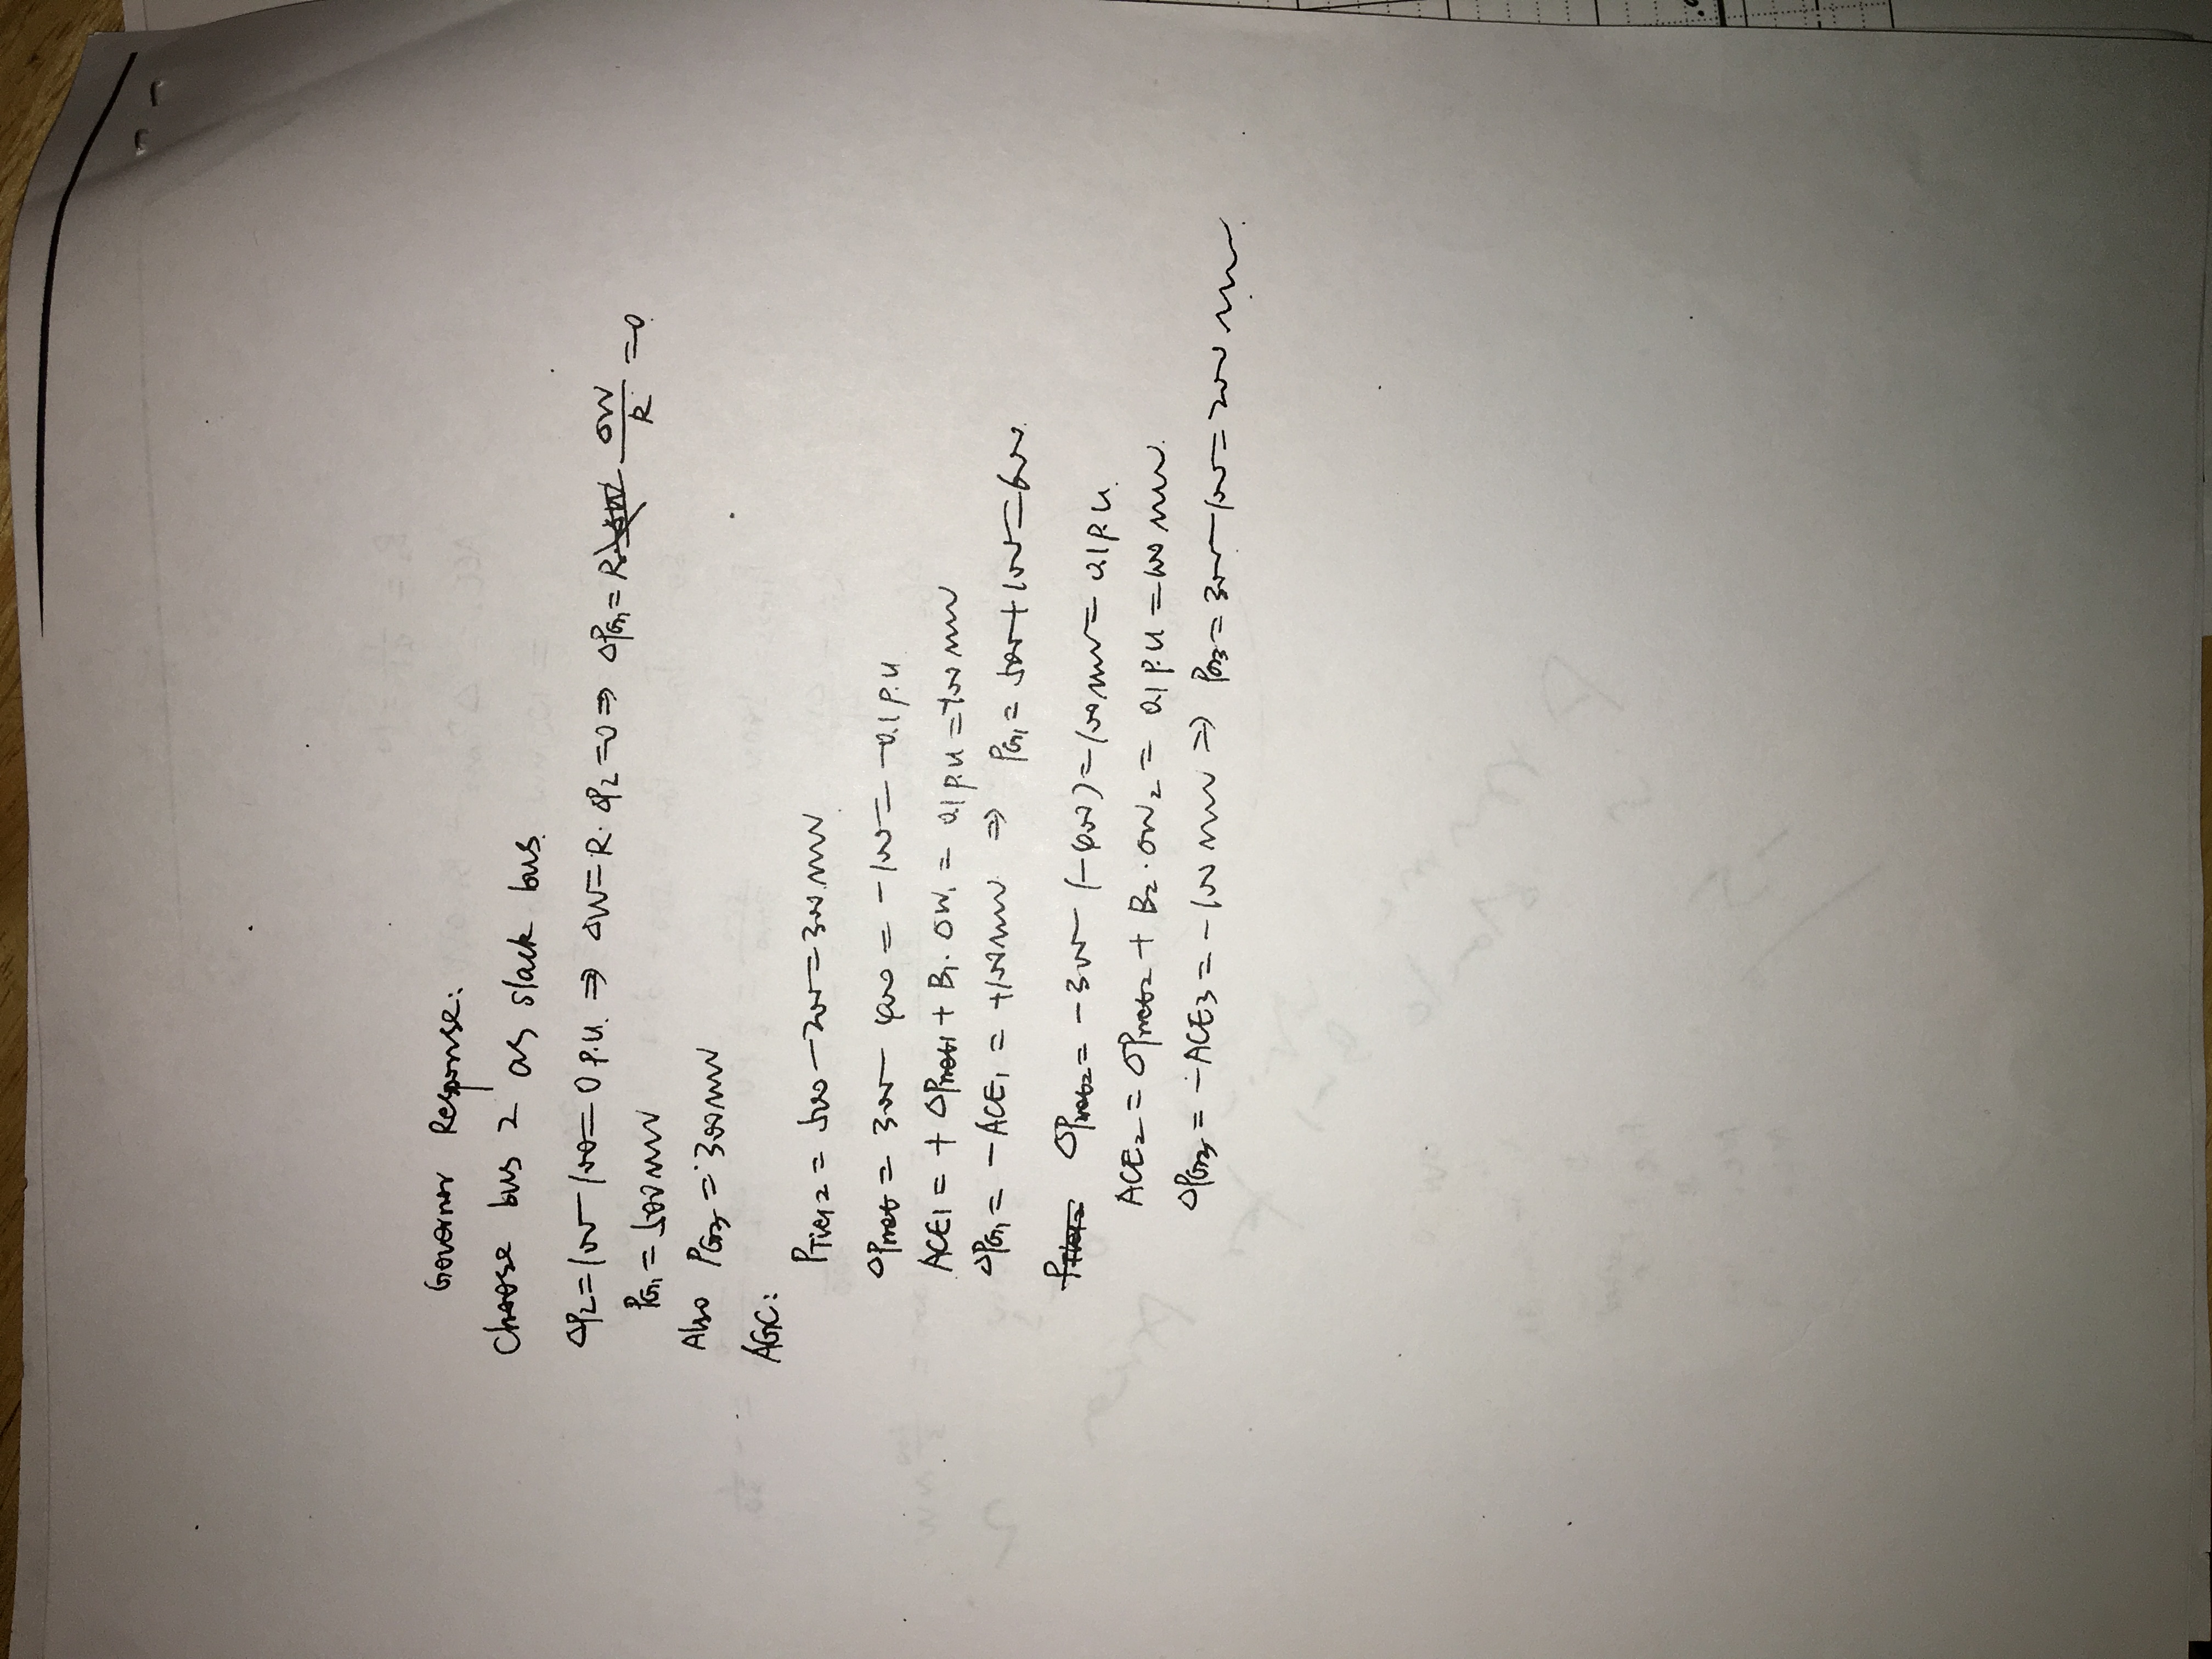 Governor Response:
Choose bus 2 as slack bus.
ΔP2 = 100 - 100 = 0 P.U. ⇒ ΔW = R · ΔP2 = 0 ⇒ ΔPG1 = ΔW/R = 0
PG1 = 500MW
Also PG3 = 300MW
AGC:
PTie12 = 500 - 200 = 300MW
ΔPnet = 300 - 400 = -100 = -0.1 P.U
ACE1 = + ΔPnet1 + B1 · ΔW1 = 0.1 P.U = 100 MW
ΔPG1 = -ACE1 = +100MW ⇒ PG1 = 500 + 100 = 600.
ΔPnet2 = -300 - (-400) = 100MW = 0.1 P.U.
ACE2 = ΔPnet2 + B2 · ΔW2 = 0.1 P.U = 100 MW.
ΔPG3 = -ACE3 = -100 MW ⇒ PG3 = 300 - 100 = 200 MW.